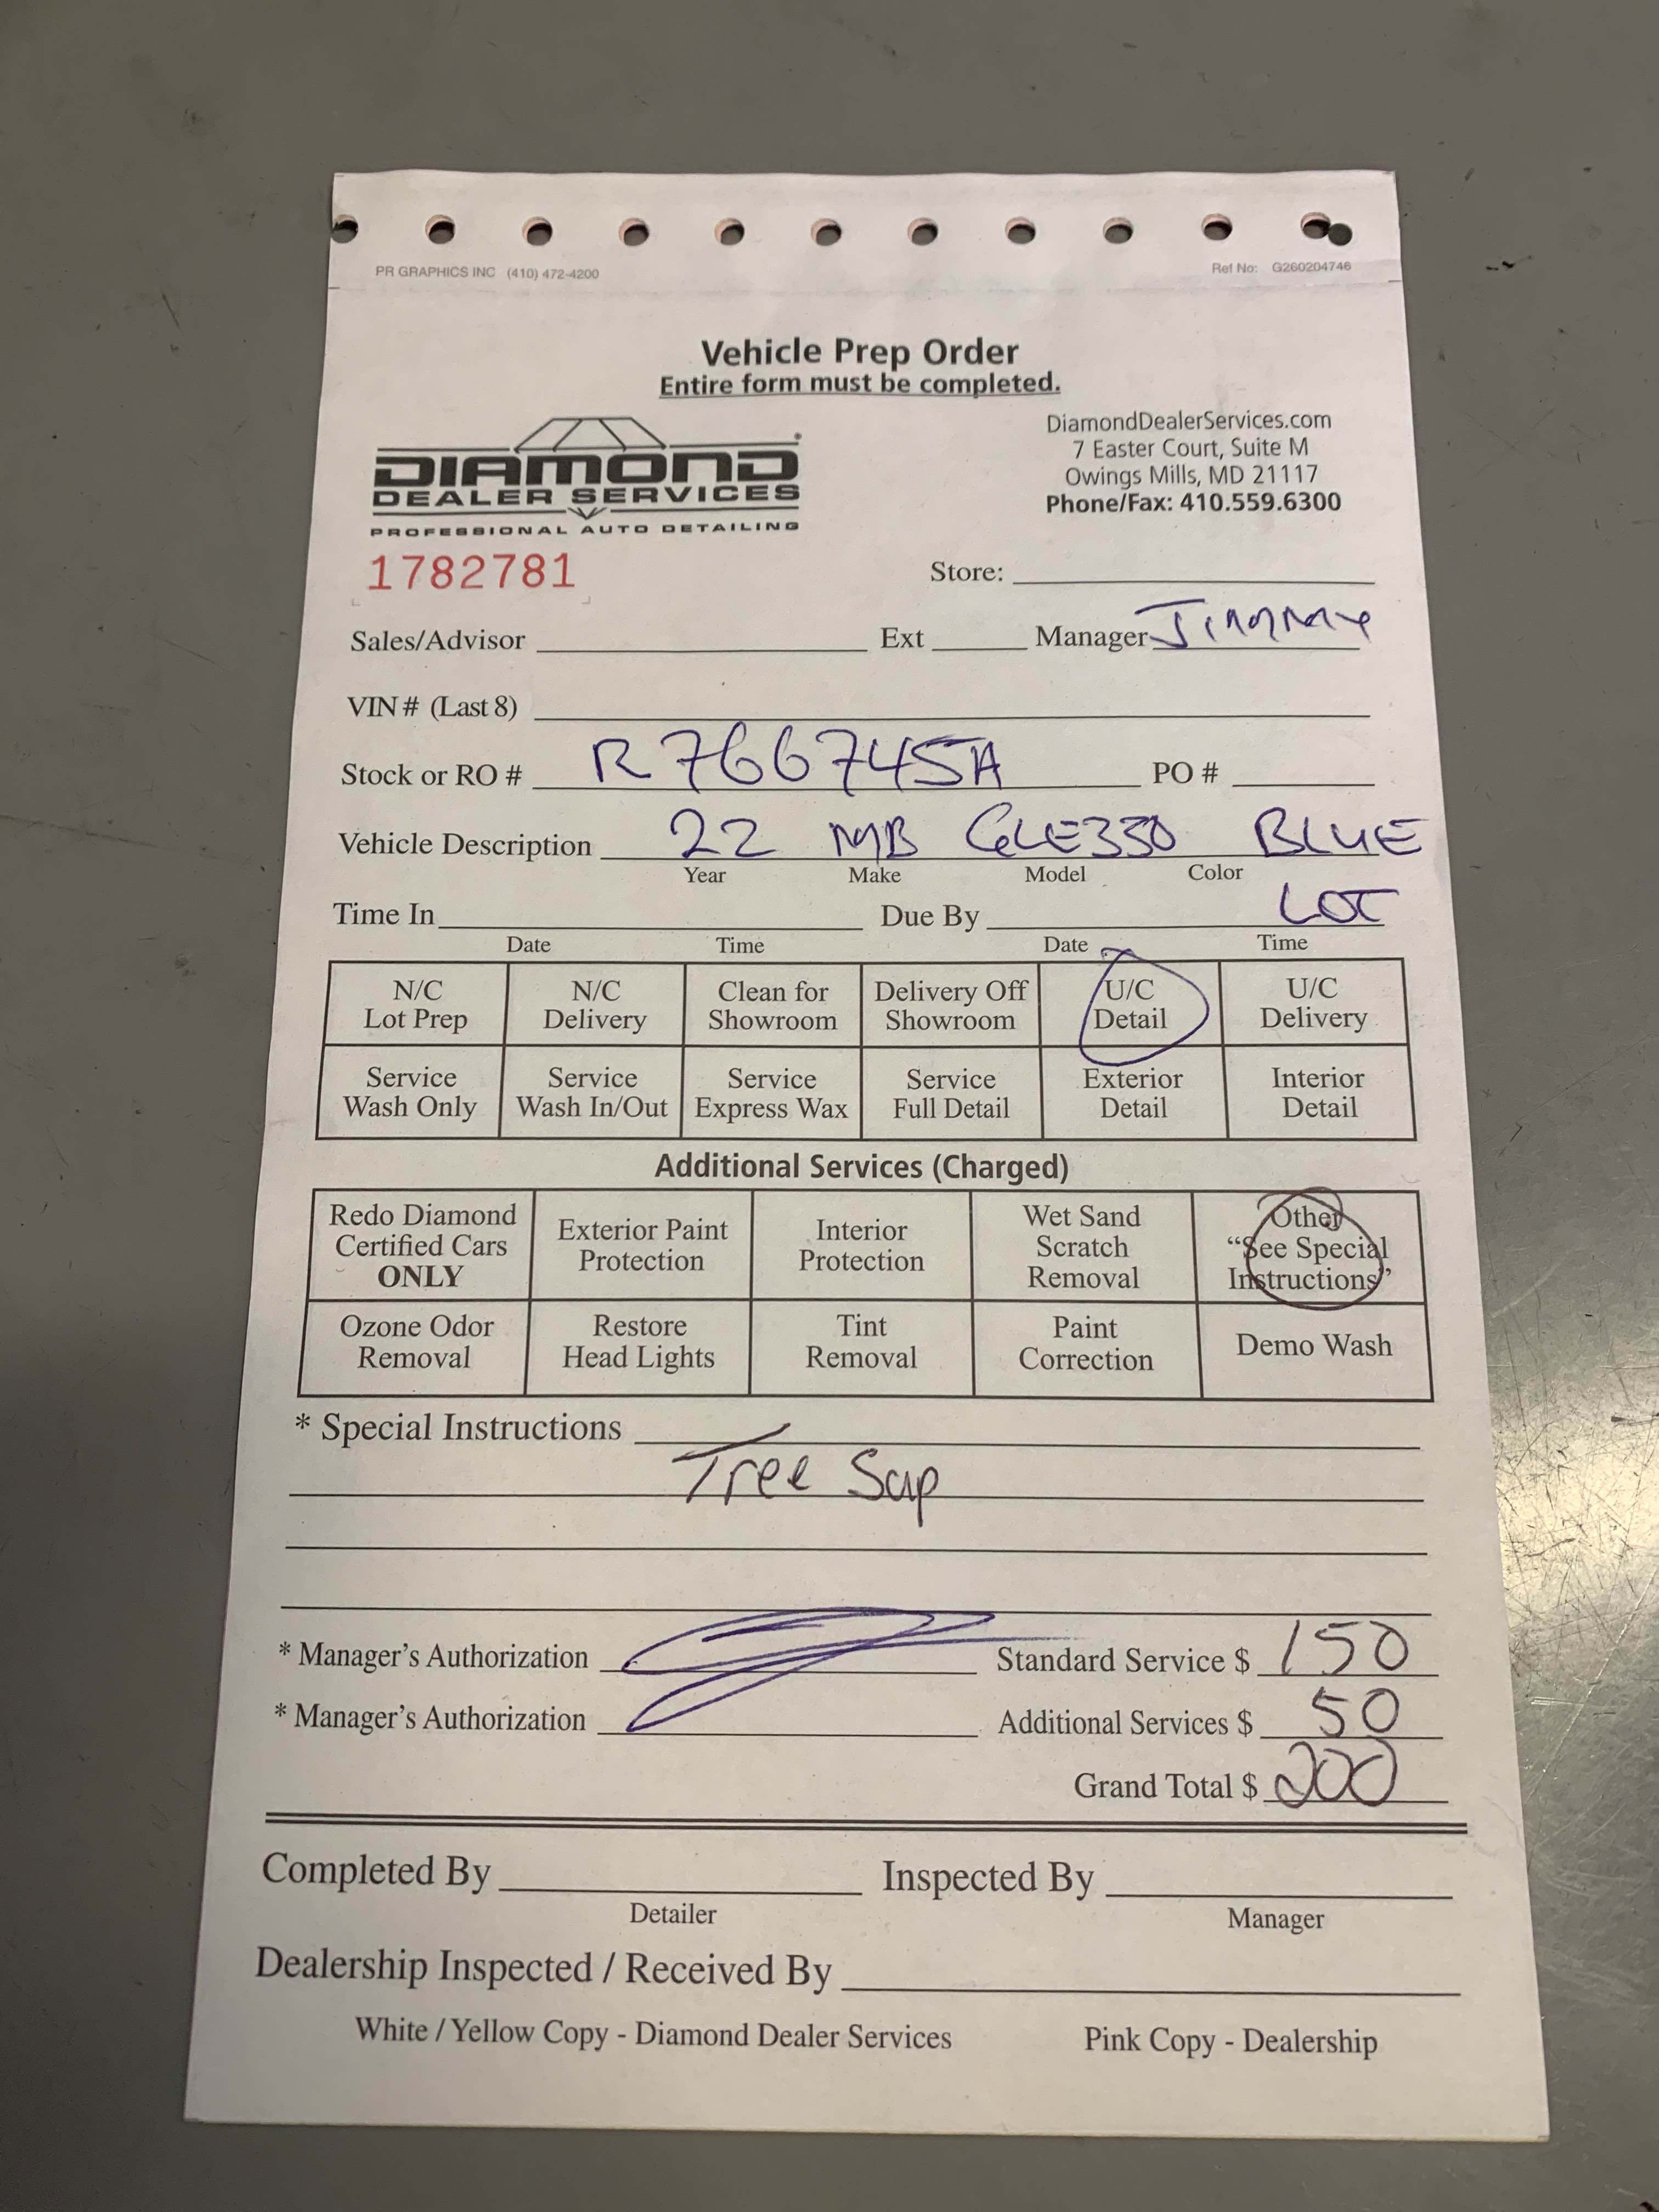 PR GRAPHICS INC (410) 472-4200 Ref No: G260204746
Vehicle Prep Order
Entire form must be completed.
DIAMOND
DEALER SERVICES
PROFESSIONAL AUTO DETAILING
DiamondDealerServices.com
7 Easter Court, Suite M
Owings Mills, MD 21117
Phone/Fax: 410.559.6300
1782781 Store:
Sales/Advisor Ext Manager Jimmy
VIN # (Last 8)
Stock or RO # R766745A PO #
Vehicle Description 22 MB GLE350 BLUE
Year Make Model Color
Time In Due By LOT
Date Time Date Time
N/C Lot Prep N/C Delivery Clean for Showroom Delivery Off Showroom U/C Detail U/C Delivery
Service Wash Only Service Wash In/Out Service Express Wax Service Full Detail Exterior Detail Interior Detail
Additional Services (Charged)
Redo Diamond Certified Cars ONLY Exterior Paint Protection Interior Protection Wet Sand Scratch Removal Other "See Special Instructions"
Ozone Odor Removal Restore Head Lights Tint Removal Paint Correction Demo Wash
* Special Instructions
Tree Sap
* Manager's Authorization Standard Service $ 150
* Manager's Authorization Additional Services $ 50
Grand Total $ 200
Completed By Inspected By
Detailer Manager
Dealership Inspected / Received By
White / Yellow Copy - Diamond Dealer Services Pink Copy - Dealership